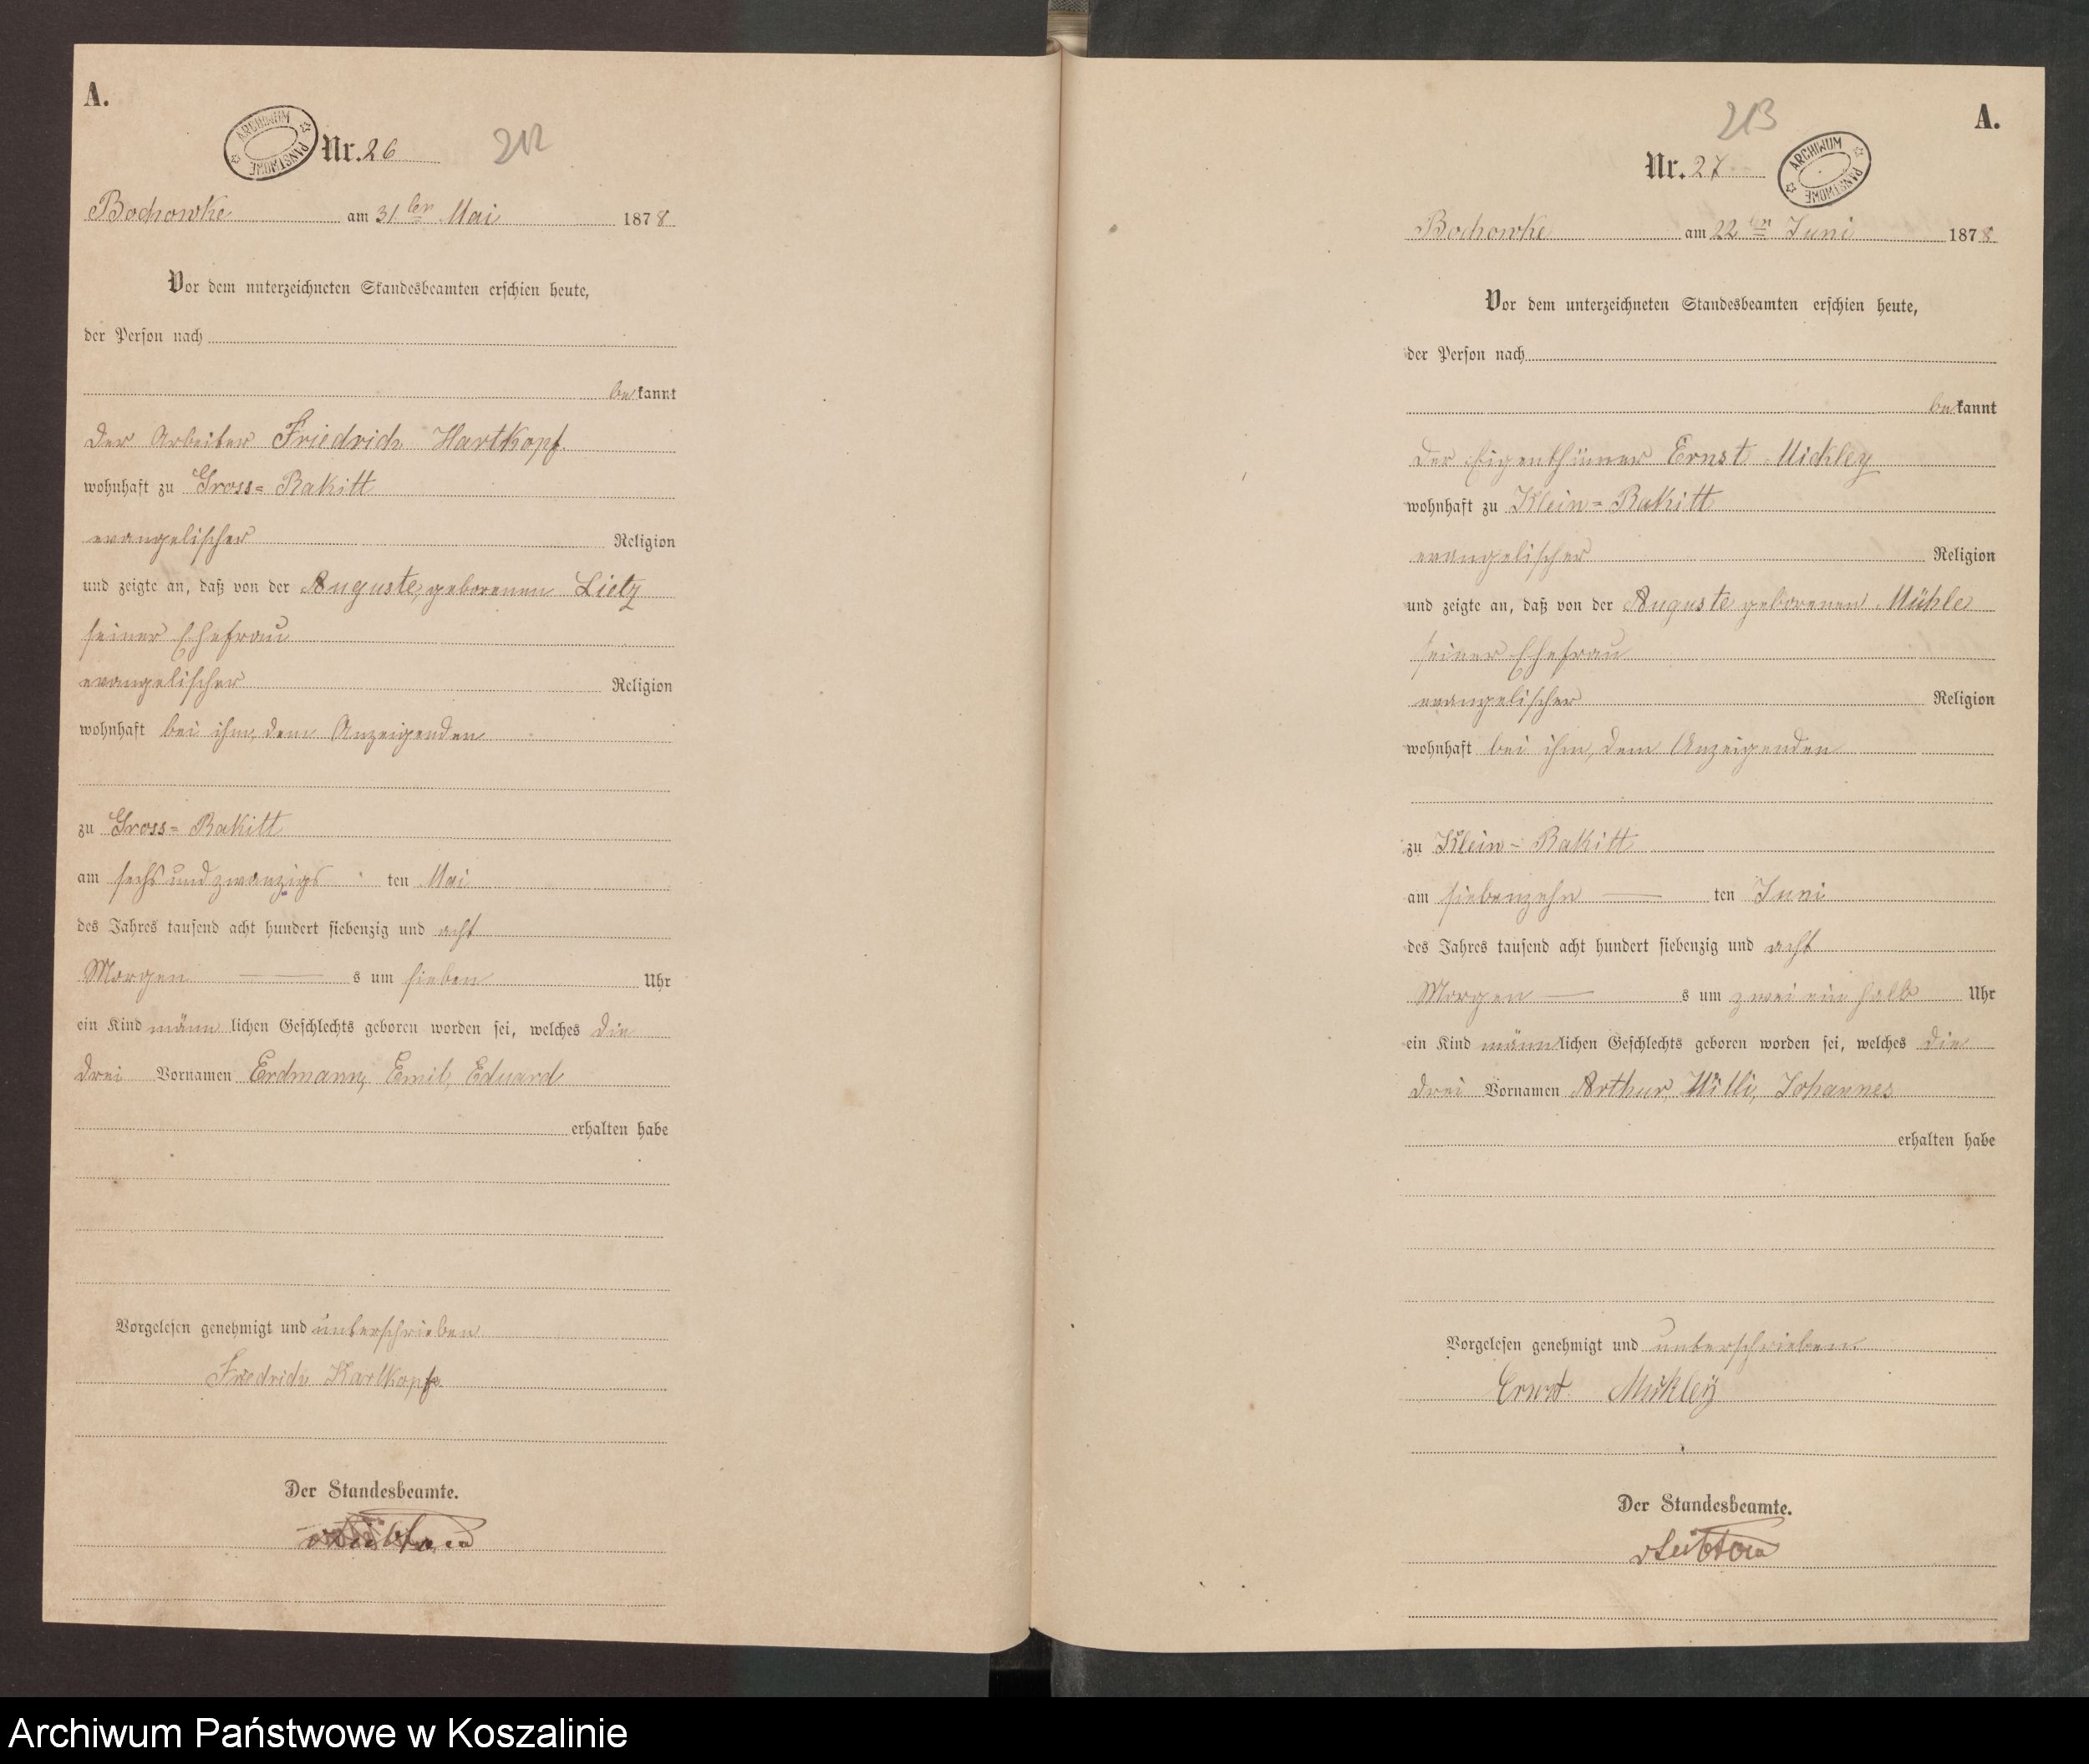 A.
ARCHIWUM PAŃSTWOWE
Nr. 26
212
Bochowke am 31ten Mai 1878
Vor dem unterzeichneten Standesbeamten erschien heute,
der Person nach
bekannt
der Arbeiter Friedrich Hartkopf
wohnhaft zu Gross=Rakitt
evangelischer Religion
und zeigte an, daß von der Auguste, geborenen Lietz
seiner Ehefrau
evangelischer Religion
wohnhaft bei ihm, dem Anzeigenden
zu Gross=Rakitt
am sechs und zwanzigs ten Mai
des Jahres tausend acht hundert siebenzig und acht
Morgen s um sieben Uhr
ein Kind männlichen Geschlechts geboren worden sei, welches die
drei Vornamen Erdmann, Emil, Eduard
erhalten habe
Vorgelesen genehmigt und unterschrieben
Friedrich Hartkopf
Der Standesbeamte.
A.
213
Nr. 27
ARCHIWUM PAŃSTWOWE
Bochowke am 22ten Juni 1878
Vor dem unterzeichneten Standesbeamten erschien heute,
der Person nach
bekannt
der Eigenthümer Ernst Mickley
wohnhaft zu Klein=Rakitt
evangelischer Religion
und zeigte an, daß von der Auguste geborenen Mühle
seiner Ehefrau
evangelischer Religion
wohnhaft bei ihm, dem Anzeigenden
zu Klein=Rakitt
am siebenzehn ten Juni
des Jahres tausend acht hundert siebenzig und acht
Morgen s um zwei ein halb Uhr
ein Kind männlichen Geschlechts geboren worden sei, welches die
drei Vornamen Arthur, Willi, Johannes
erhalten habe
Vorgelesen genehmigt und unterschrieben
Ernst Mickley
Der Standesbeamte.
Archiwum Państwowe w Koszalinie